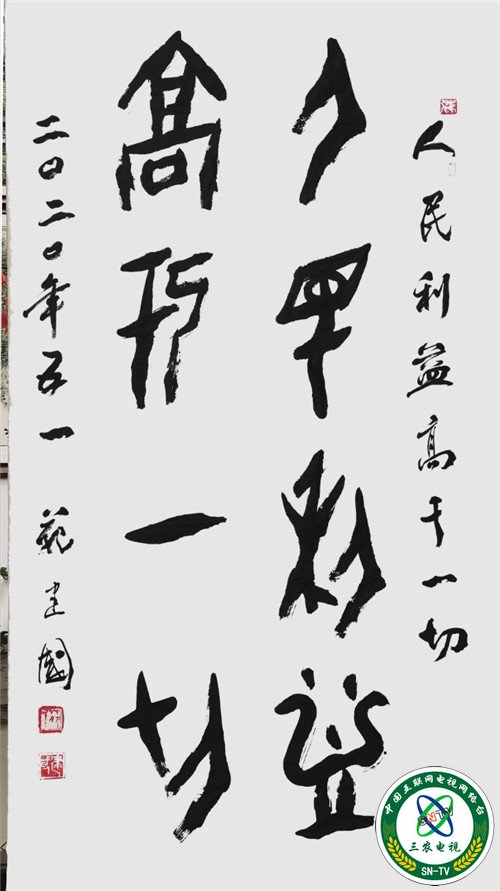 人民利益高于一切
人民利益
高于一切
二〇二〇年五一 建國
中国互联网电视网络台
SN-TV
三农电视
SN-TV